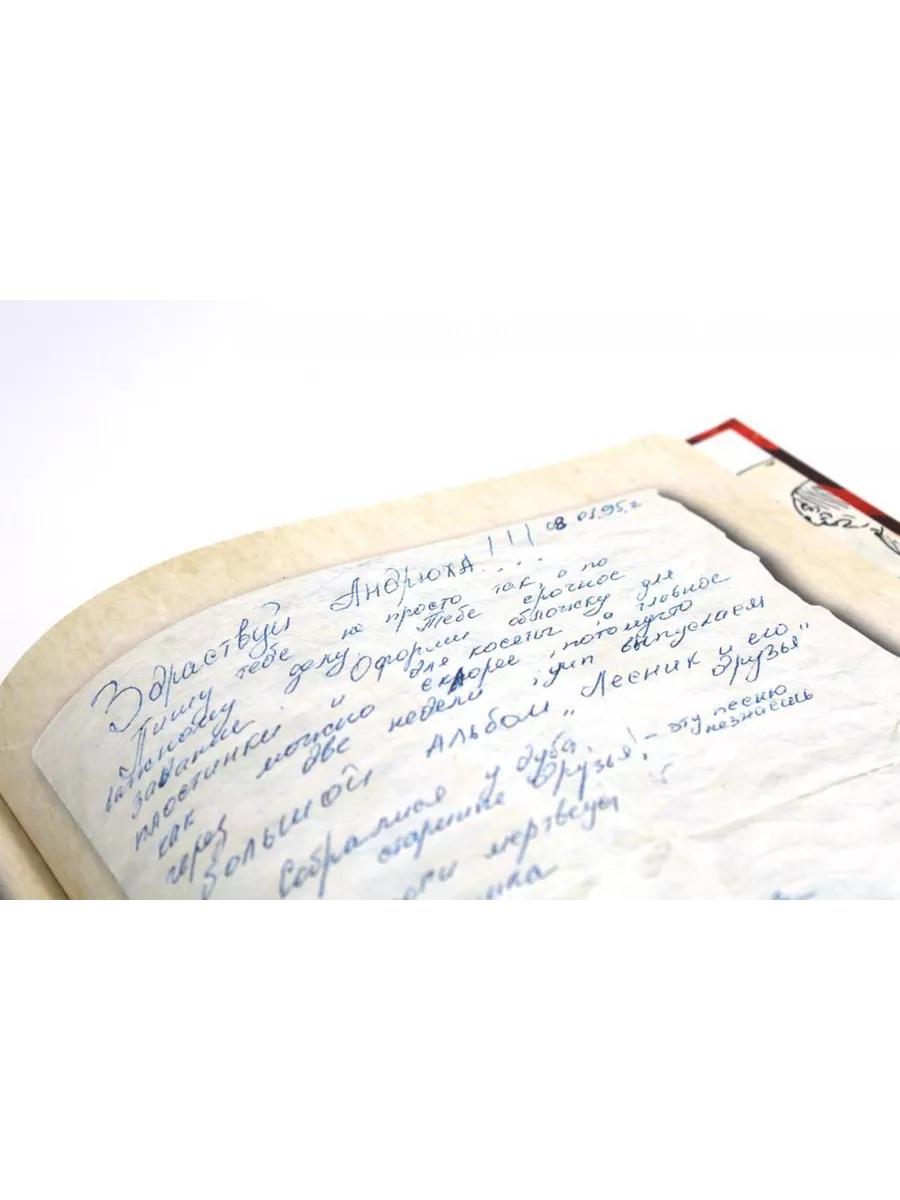 08.01.95.г
Здраствуй Андрюха!!!....
Пишу тебе не просто так, а по
важному делу. Тебе срочное
задание: Оформи обложку для
пластинки и для косеты, а главное
как можно скорее, потомучто
через две недели, уже выпускаем
Большой Альбом „Лесник и его
друзья"
Собралися у дуба,
старинные друзья! – эту песню
незнаешь
мертвецы